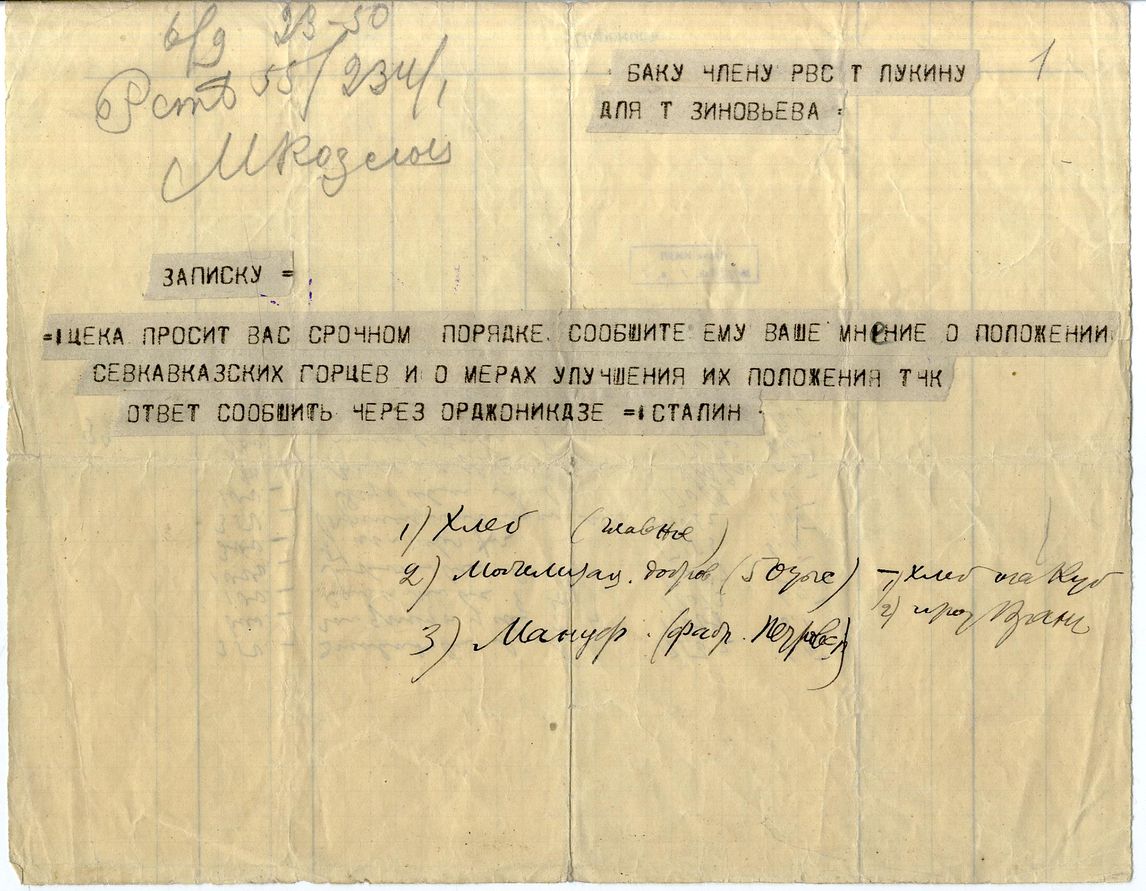 6/9 23-50
55/234/1
МКозлов
1
БАКУ ЧЛЕНУ РВС Т ЛУКИНУ
ДЛЯ Т ЗИНОВЬЕВА =
ЗАПИСКУ =
=ЦЕКА ПРОСИТ ВАС СРОЧНОМ ПОРЯДКЕ СООБШИТЕ ЕМУ ВАШЕ МНЕНИЕ О ПОЛОЖЕНИИ
СЕВКАВКАЗСКИХ ГОРЦЕВ И О МЕРАХ УЛУЧШЕНИЯ ИХ ПОЛОЖЕНИЯ ТЧК
ОТВЕТ СООБШИТЬ ЧЕРЕЗ ОРДЖОНИКДЗЕ = СТАЛИН
1) Хлеб (главное)
2) Мобилизац. добров (50тыс) – 1) хлеб на Куб
2)
3) Мануф. (фабр.